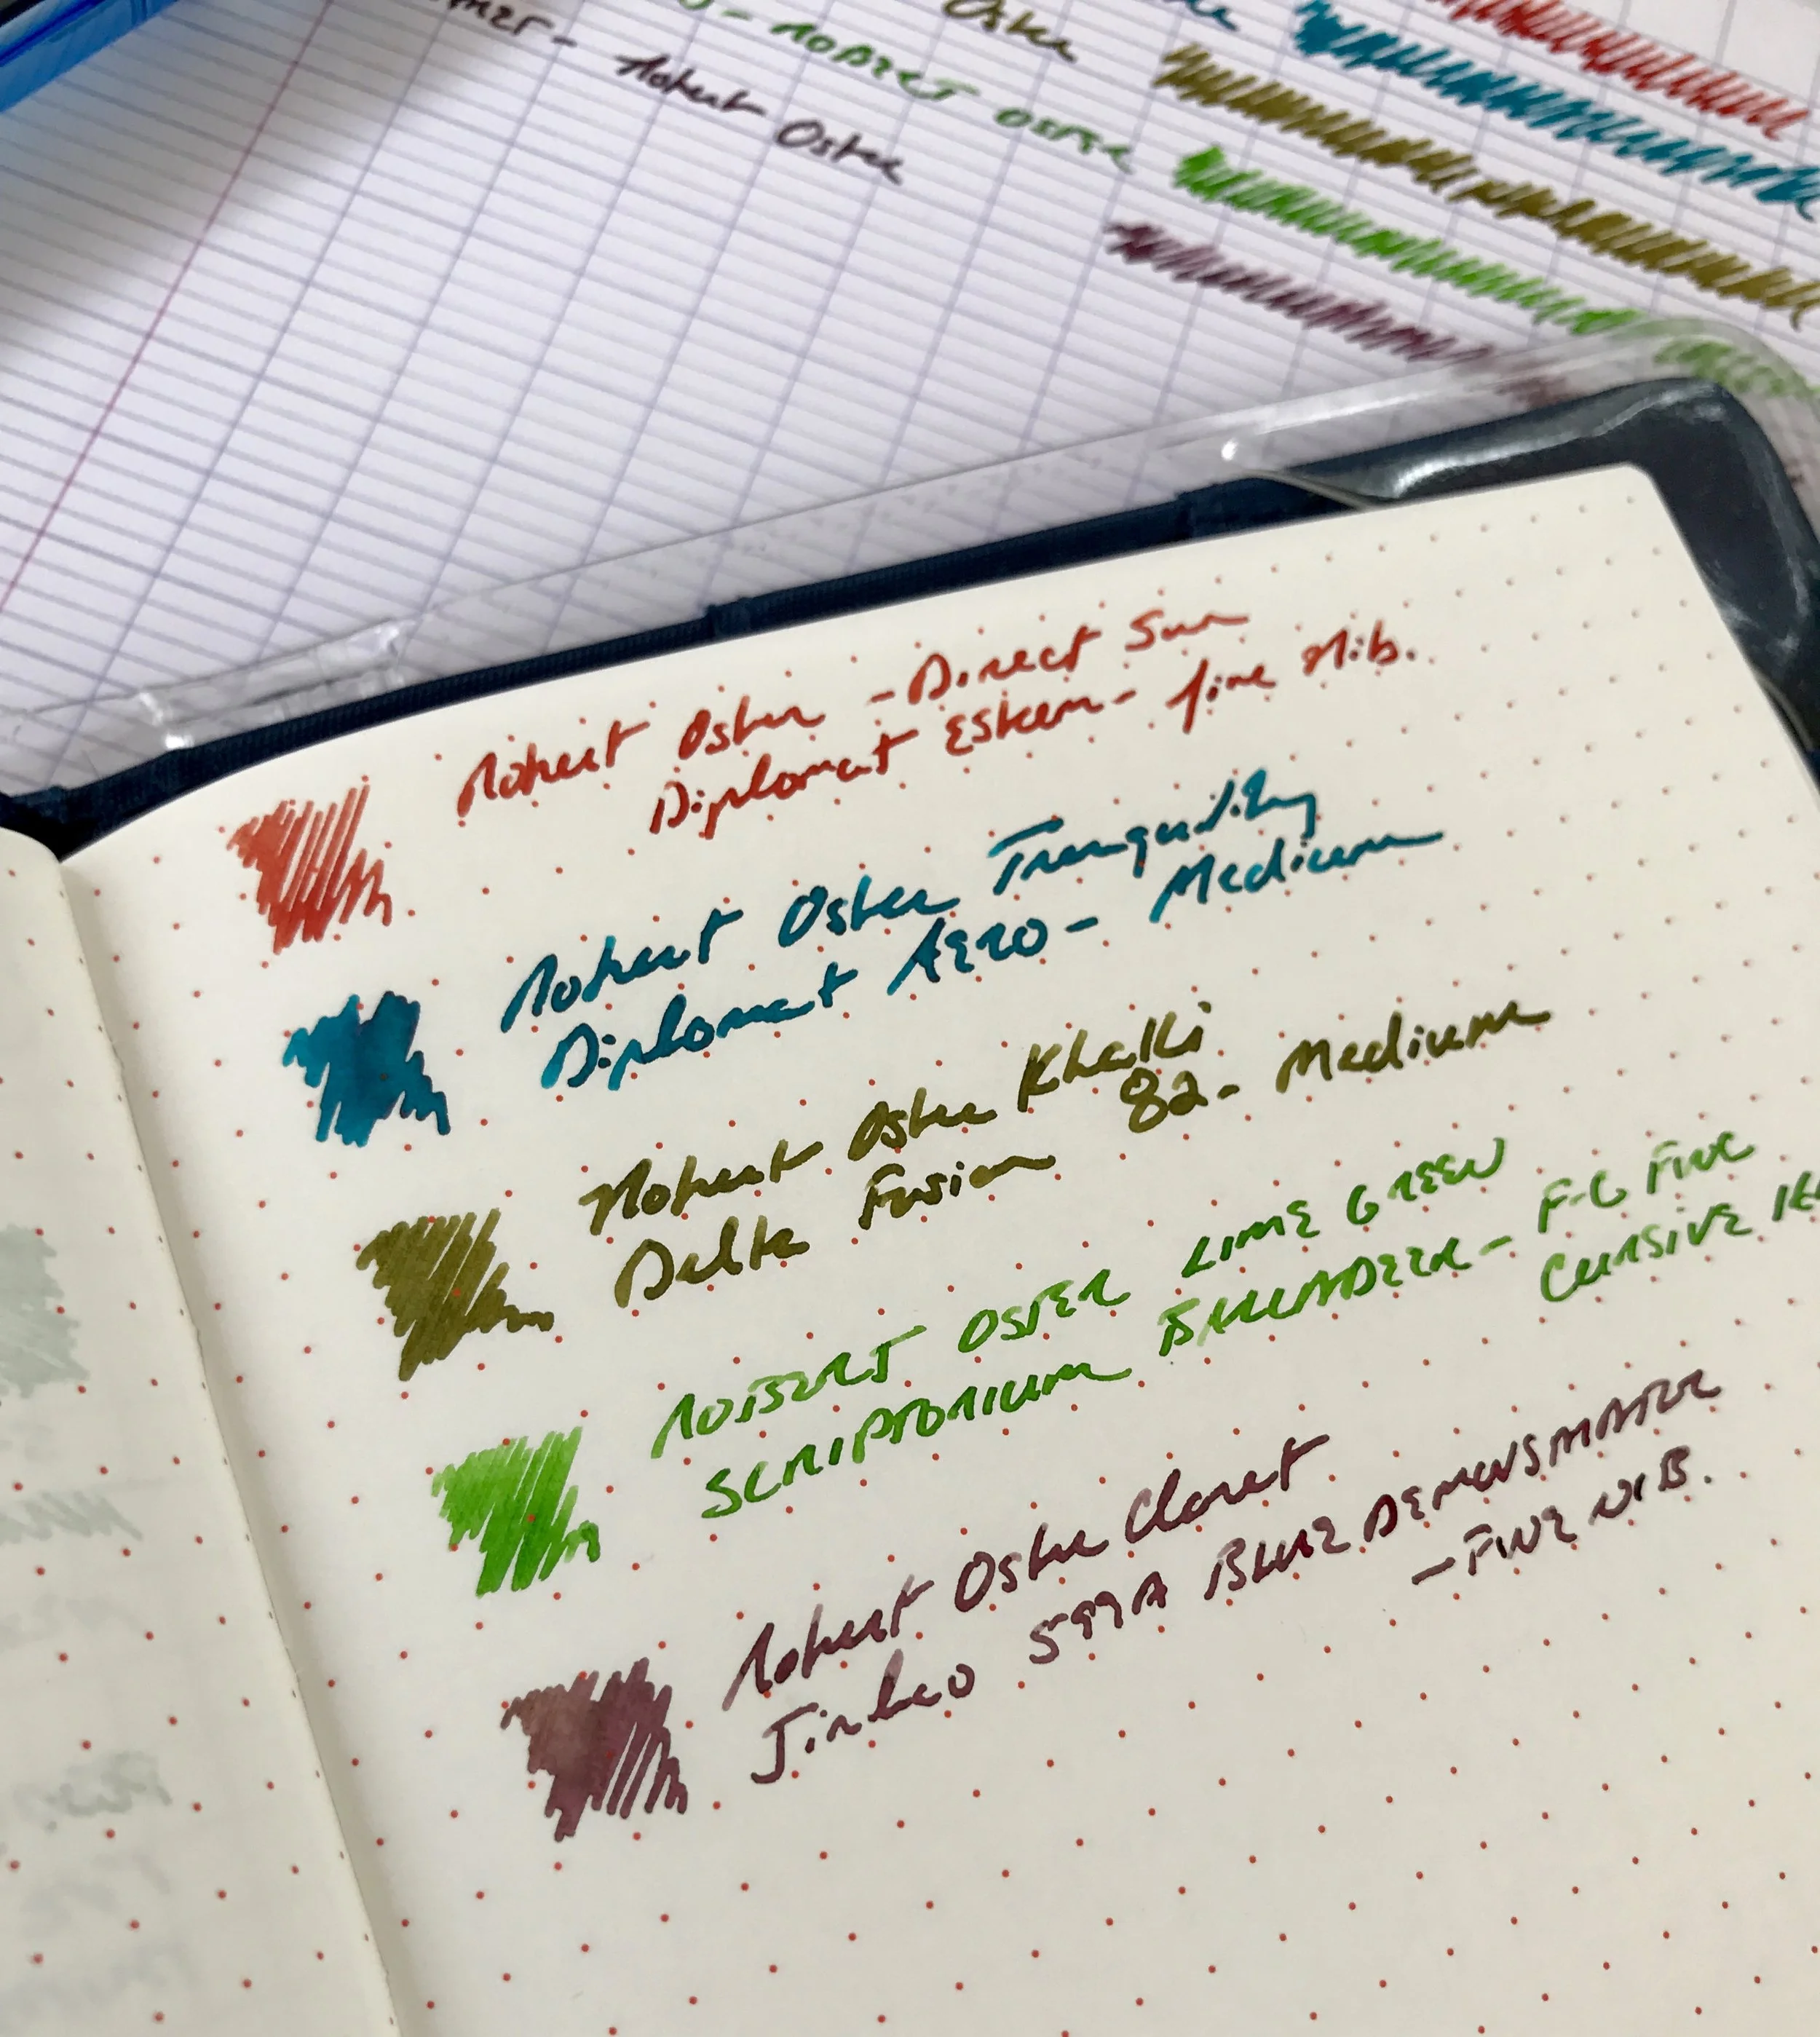 Robert Oster
- ROBERT OSTER
Oster
Robert Oster - Direct Sun
Diplomat Esteem - fine Nib.
Robert Oster Tranquility
Diplomat AERO - Medium
Robert Oster Khaki
Delta Fusion 82 - Medium
ROBERT OSTER LIME GREEN
SCRIPTORIUM BALLADEER - F-C FINE
CURSIVE
Robert Oster Claret
Jinhao 599A BLUE DEMONSTRATOR
- FINE NIB.